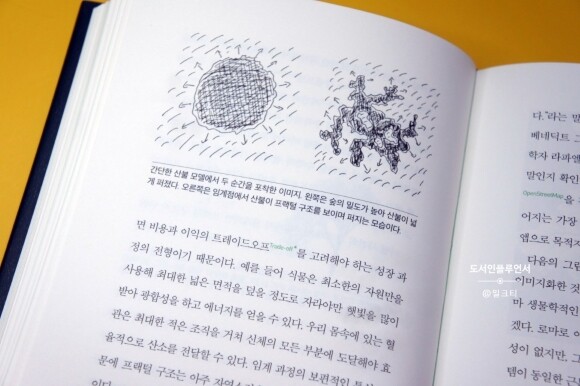 간단한 산불 모델에서 두 순간을 포착한 이미지. 왼쪽은 숲의 밀도가 높아 산불이 넓
게 퍼졌다. 오른쪽은 임계점에서 산불이 프랙털 구조를 보이며 퍼지는 모습이다.
면 비용과 이익의 트레이드오프Trade-off*를 고려해야 하는 성장 과
정의 전형이기 때문이다. 예를 들어 식물은 최소한의 자원만을
사용해 최대한 넓은 면적을 덮을 정도로 자라야만 햇빛을 많이
받아 광합성을 하고 에너지를 얻을 수 있다. 우리 몸속에 있는 혈
관은 최대한 적은 조직을 거쳐 신체의 모든 부분에 도달해야 효
율적으로 산소를 전달할 수 있다. 임계 과정의 보편적인
문에 프랙털 구조는 아주
다."라는 말
베네딕트
학자 라파엘
말인지 확인
OpenStreetMap을
어지는 가장
앱으로 목적지
다음의 그림
이미지화한 것
마 생물학적인
겠다. 로마로
성이 없지만, 그
템이 동일한 근
도서인플루언서
@밀크티